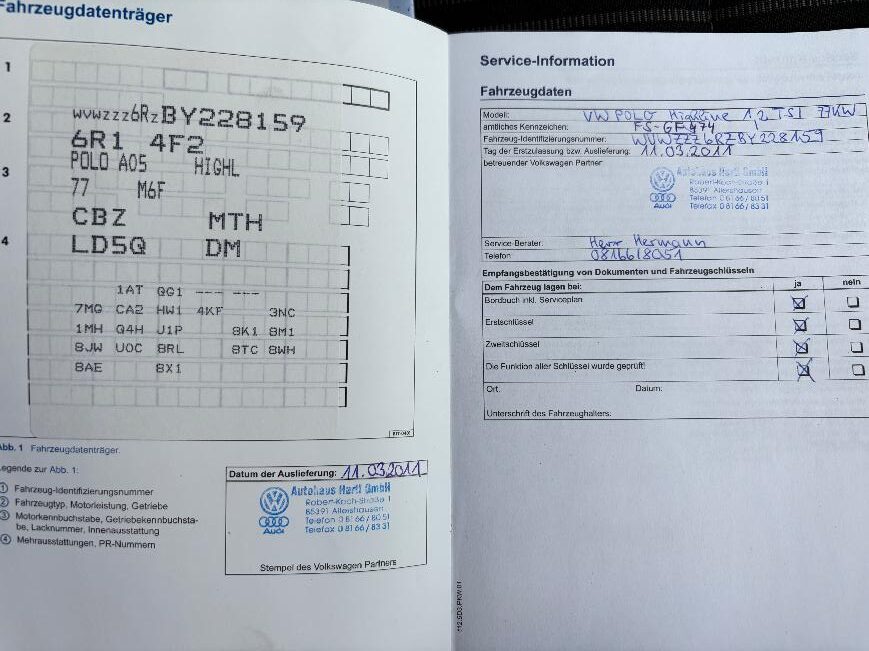 Fahrzeugdatenträger
1
2
WVWZZZ6RZBY228159
6R1 4F2
3
POLO A05 HIGHL
77 M6F
CBZ MTH
4
LD5Q DM
1AT GG1 --- ---
7MG CA2 HW1 4KF 3NC
1MH Q4H J1P 8K1 8M1
8JW U0C 8RL 8TC 8WH
8AE 8X1
Abb. 1 Fahrzeugdatenträger.
Legende zur Abb. 1:
① Fahrzeug-Identifizierungsnummer
② Fahrzeugtyp, Motorleistung, Getriebe
③ Motorkennbuchstabe, Getriebekennbuchsta-
be, Lacknummer, Innenausstattung
④ Mehrausstattungen, PR-Nummern
Datum der Auslieferung: 11.03.2011
Autohaus Hartl GmbH
Robert-Koch-Straße 1
85391 Allershausen
Telefon 0 81 66 / 80 51
Telefax 0 81 66 / 83 31
Audi
Stempel des Volkswagen Partners
Service-Information
Fahrzeugdaten
Modell: VW POLO Highline 1,2 TSI 77KW
amtliches Kennzeichen: FS-GF 474
Fahrzeug-Identifizierungsnummer: WVWZZZ6RZBY228159
Tag der Erstzulassung bzw. Auslieferung: 11.03.2011
betreuender Volkswagen Partner
Autohaus Hartl GmbH
Robert-Koch-Straße 1
85391 Allershausen
Telefon 0 81 66 / 80 51
Telefax 0 81 66 / 83 31
Audi
Service-Berater: Herr Hermann
Telefon: 08166/8051
Empfangsbestätigung von Dokumenten und Fahrzeugschlüsseln
Dem Fahrzeug lagen bei: ja nein
Bordbuch inkl. Serviceplan
Erstschlüssel
Zweitschlüssel
Die Funktion aller Schlüssel wurde geprüft!
Ort: Datum:
Unterschrift des Fahrzeughalters: